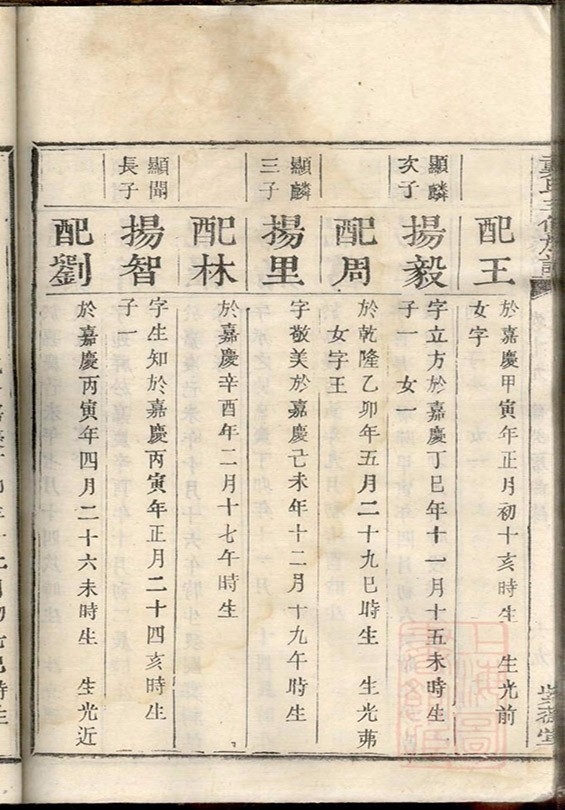 紫薇堂
配王
於嘉慶甲寅年正月初十亥時生 生光前
女字
顯麟
次子
揚毅
字立方於嘉慶丁巳年十一月十五未時生
子一 女一
配周
於乾隆乙卯年五月二十九巳時生 生光第
女字王
顯麟
三子
揚里
字敬美於嘉慶己未年十二月十九午時生
配林
於嘉慶辛酉年二月十七午時生
顯聞
長子
揚智
字生知於嘉慶丙寅年正月二十四亥時生
子一
配劉
於嘉慶丙寅年四月二十六未時生 生光近